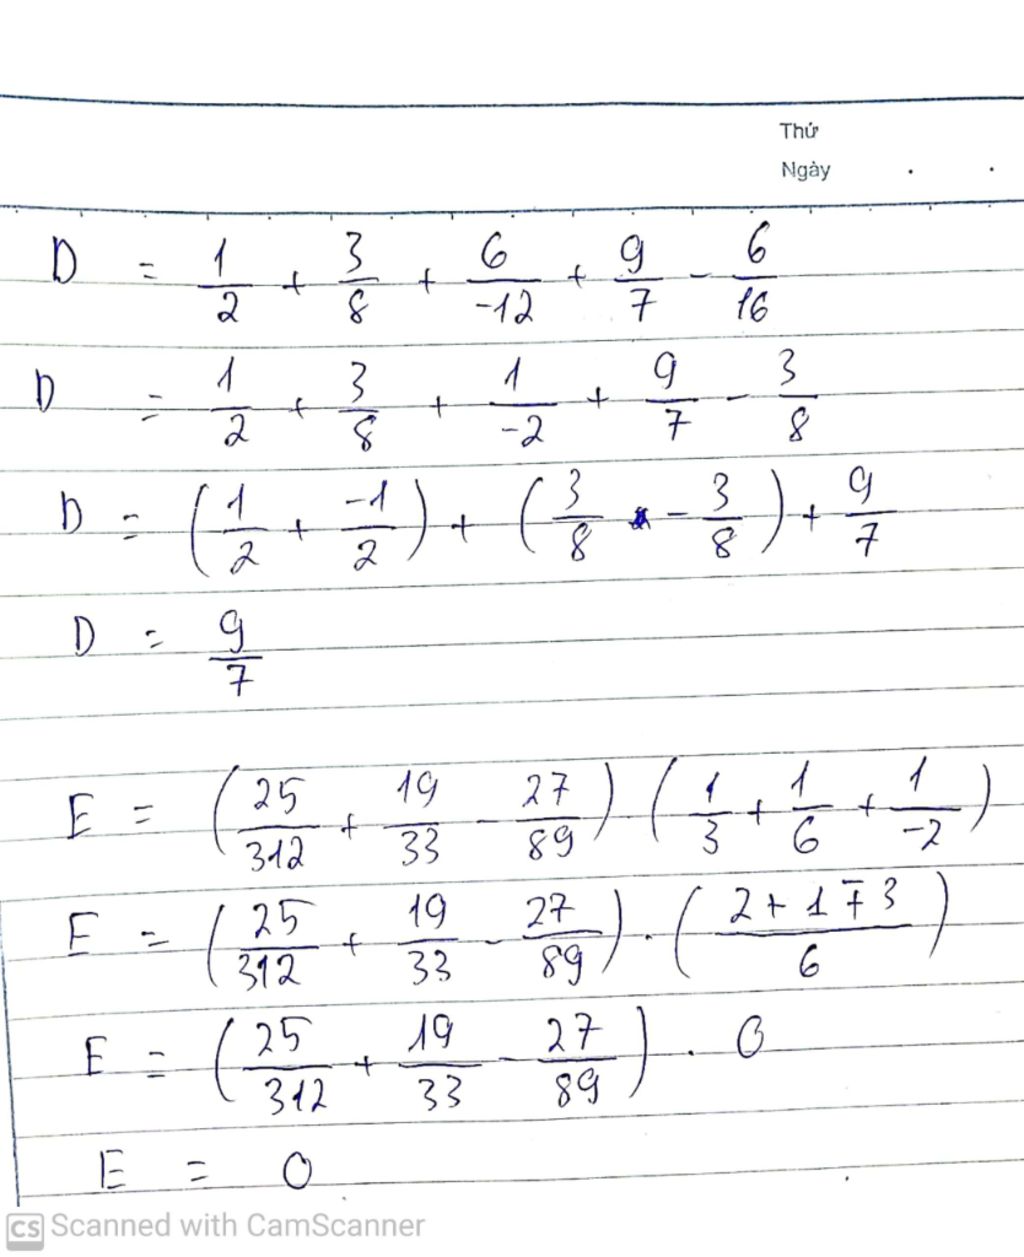 Thứ
Ngày
D = 1/2 + 3/8 + 6/-12 + 9/7 - 6/16
D = 1/2 + 3/8 + 1/-2 + 9/7 - 3/8
D = (1/2 + -1/2) + (3/8 - 3/8) + 9/7
D = 9/7
E = (25/312 + 19/33 - 27/89) (1/3 + 1/6 + 1/-2)
E = (25/312 + 19/33 - 27/89) . (2 + 1 - 3/6)
E = (25/312 + 19/33 - 27/89) . 0
E = 0
CS Scanned with CamScanner